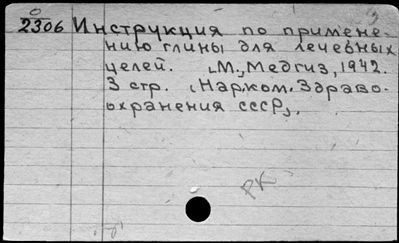 0
2306 Инструкция по примене-
нию глины для лечебных
целей. М., Медгиз, 1942.
3 стр. (Нарком. Здраво-
охранения СССР).
РК